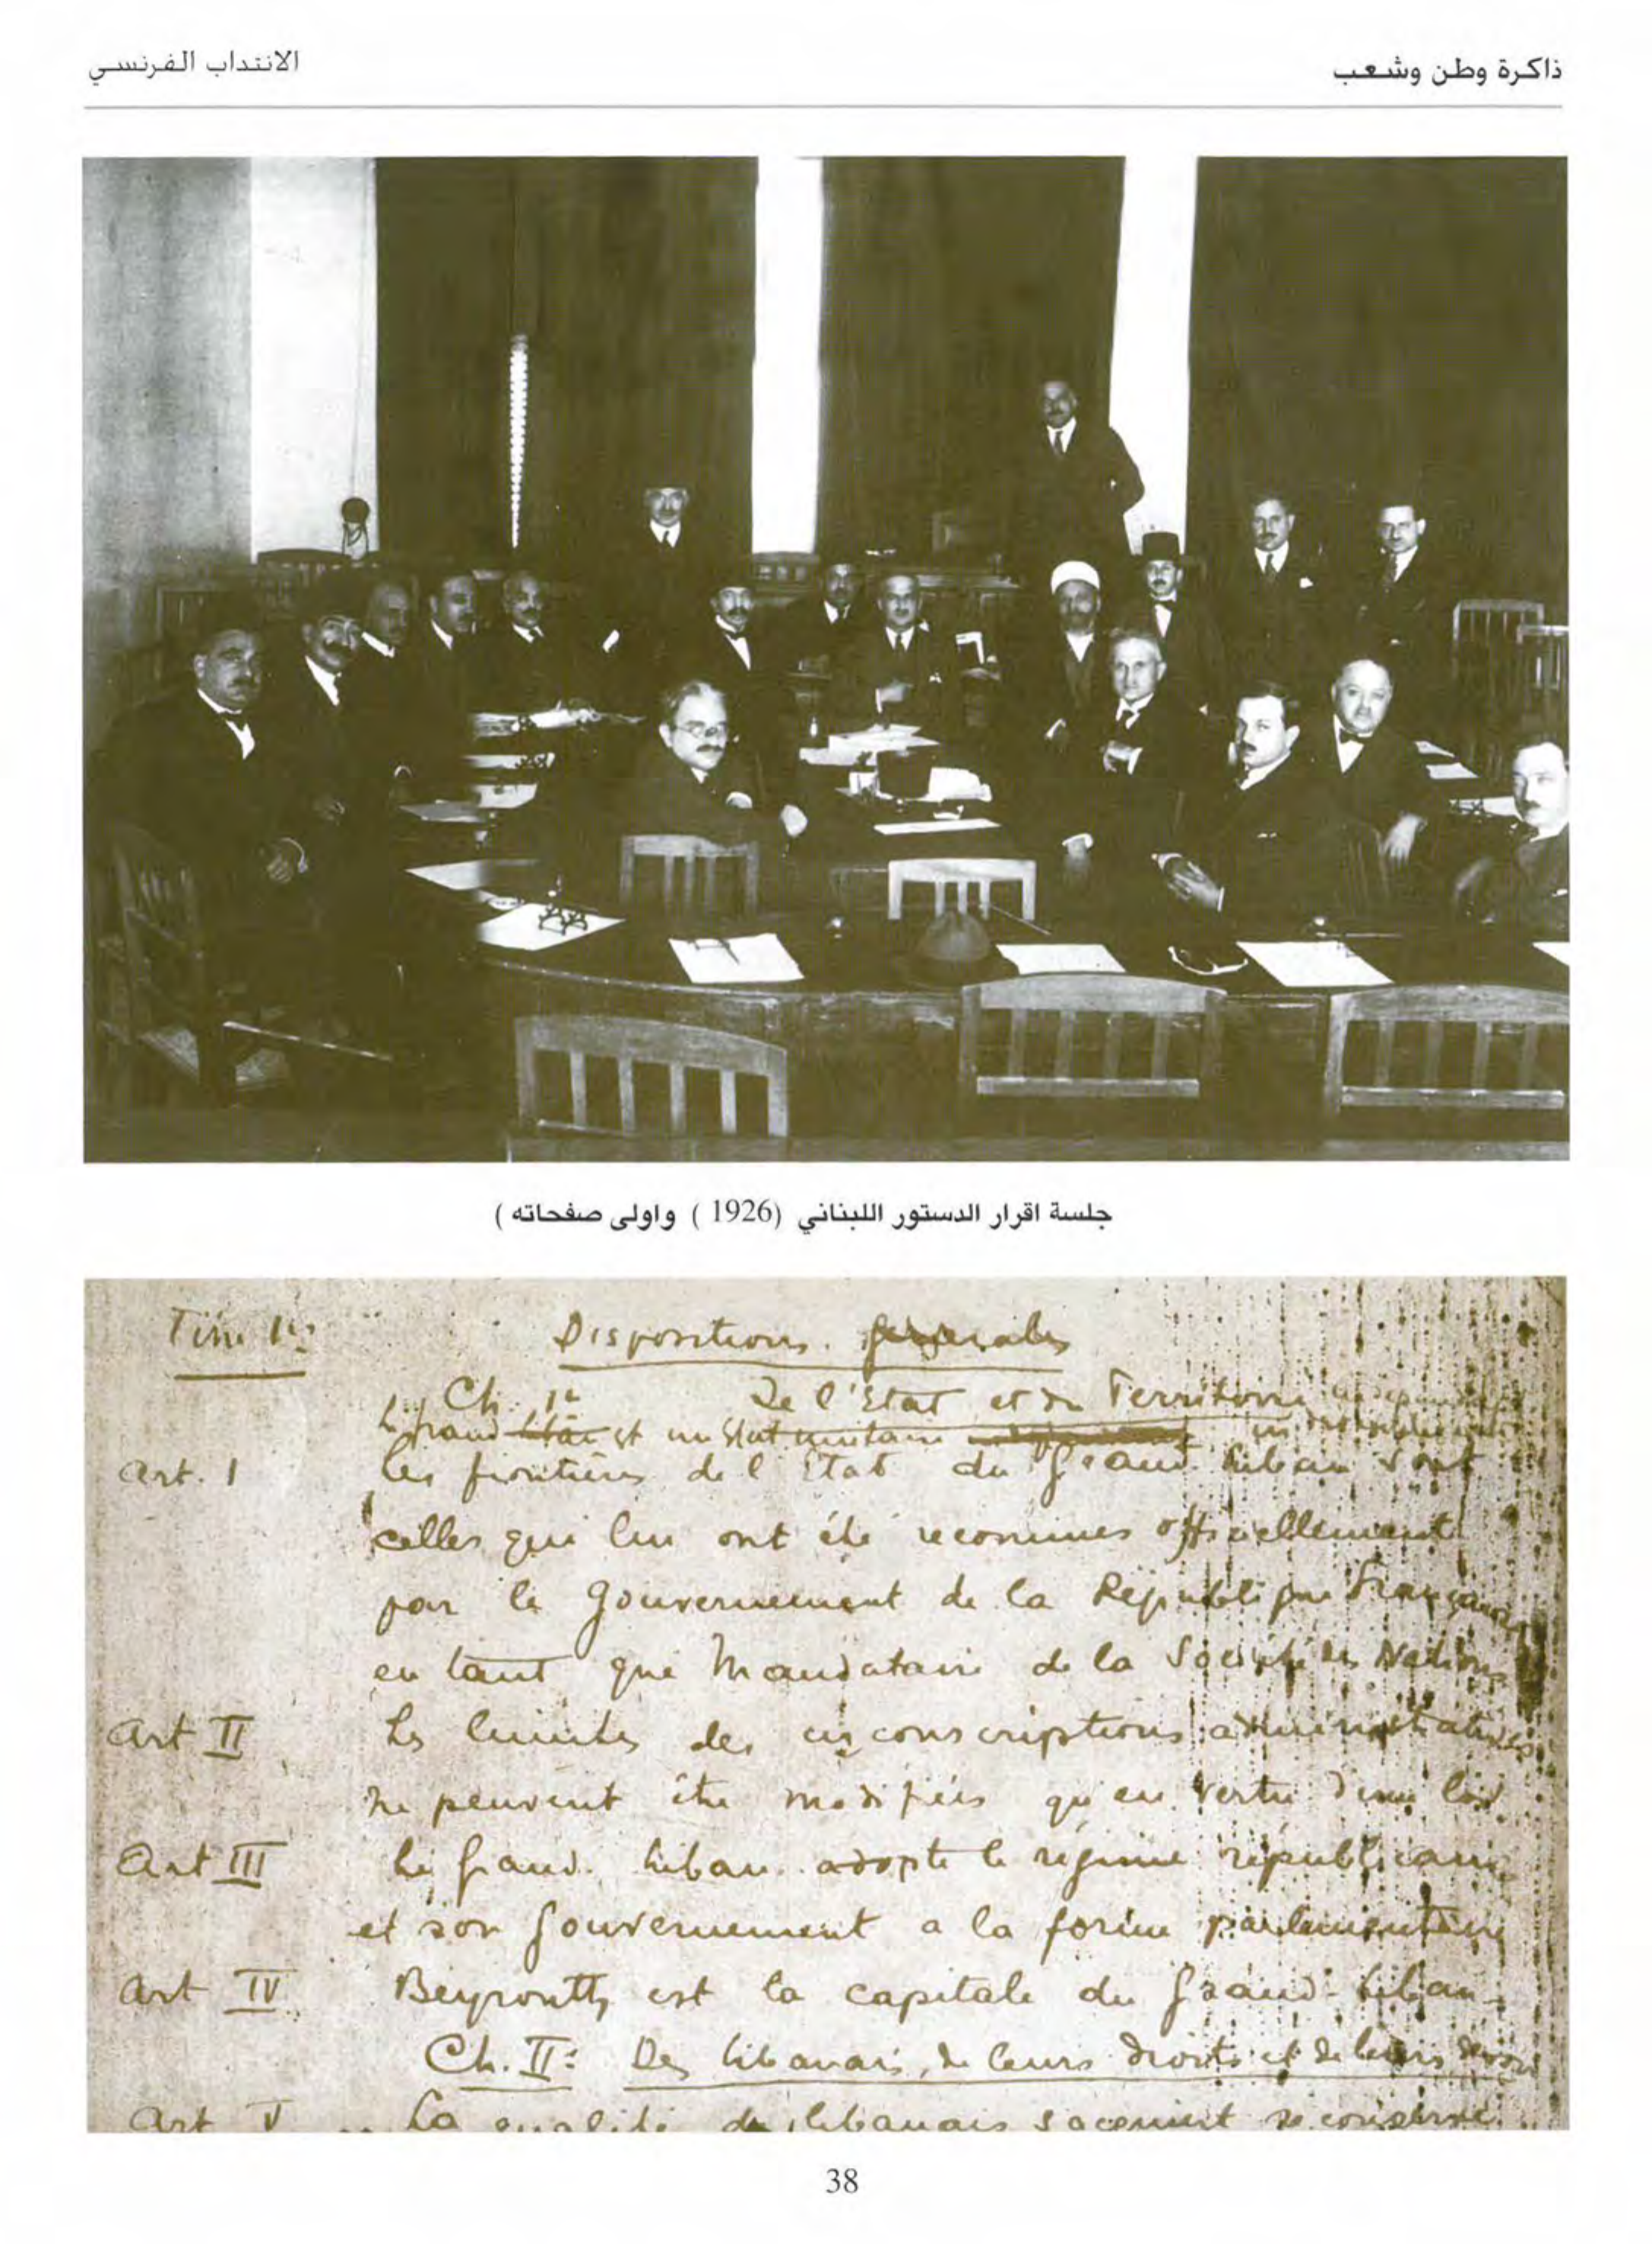 ذاكرة وطن وشعب
الانتداب الفرنسي
جلسة اقرار الدستور اللبناني (1926 ) واولى صفحاته )
Titre 1er
Dispositions générales
Ch. 1er De l'Etat et du Territoire
Le Grand Liban est un Etat unitaire
Art. I Les frontières de l'Etat du Grand Liban sont
celles qui lui ont été reconnues officiellement
par le Gouvernement de la République Française
en tant que Mandataire de la Société des Nations
Art II Les limites des circonscriptions administratives
ne peuvent être modifiées qu'en vertu d'une loi
Art III Le Grand Liban adopte le régime républicain
et son Gouvernement a la forme parlementaire
Art IV Beyrouth est la capitale du Grand-Liban
Ch. II: Des libanais, de leurs droits et de leurs devoirs
Art V La qualité de libanais s'acquiert se conserve
38